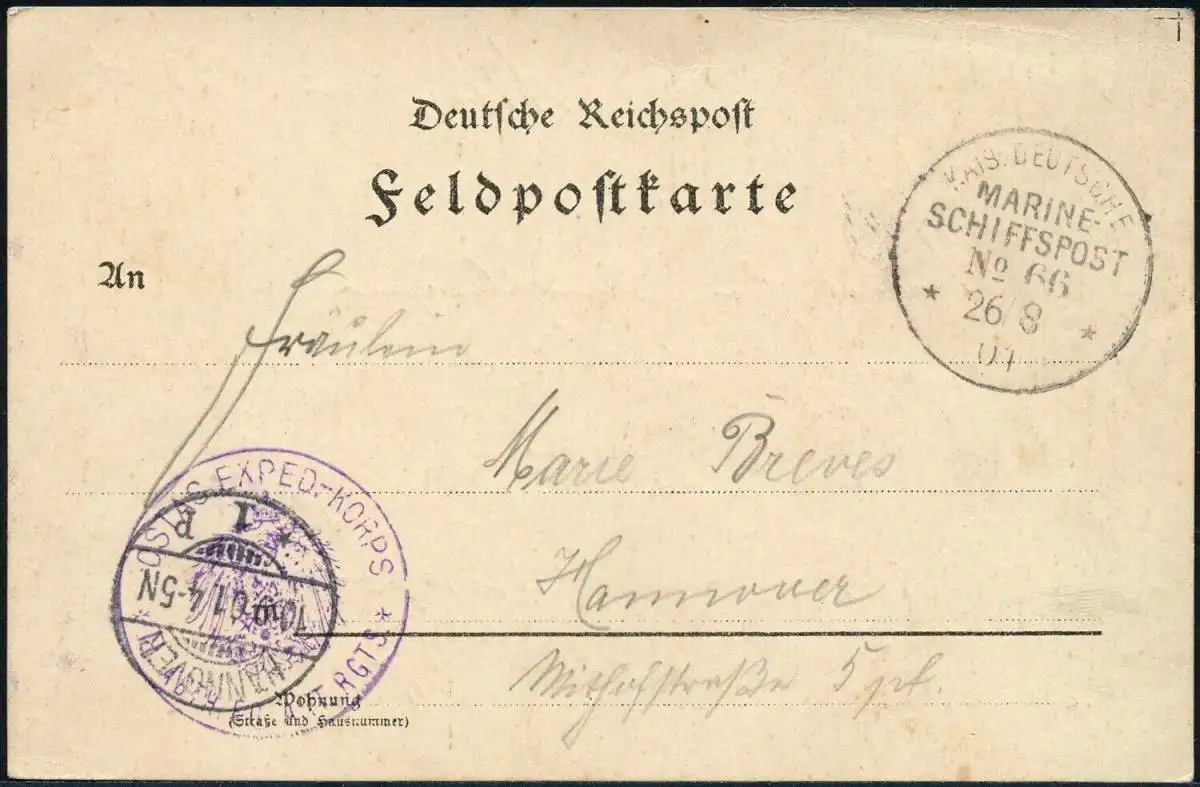 Deutsche Reichspost
Feldpostkarte
KAIS. DEUTSCHE
MARINE-
SCHIFFSPOST
No 66
26/8
01
An
Fräulein
Marie Breves
Hannover
Withofstraße 5 pt.
OSTAS. EXPED.-KORPS
RGTS
1 R
10.9.01.4-5N
HANNOVER
Wohnung
(Straße und Hausnummer)